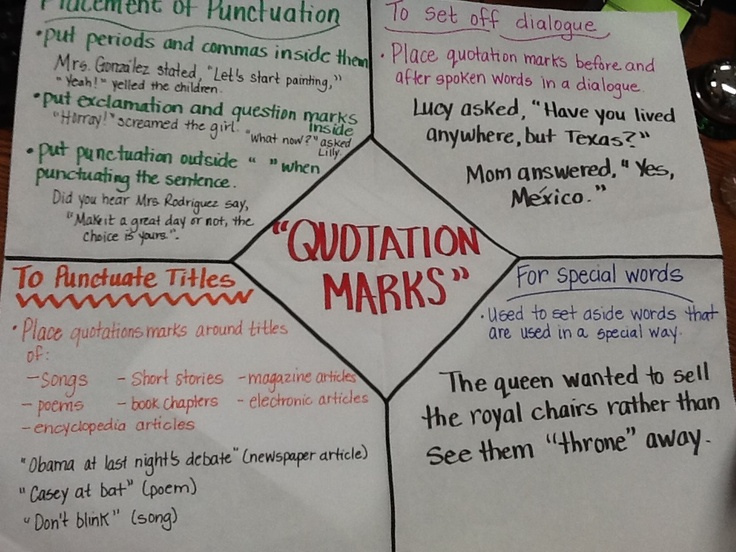 Placement of Punctuation
• put periods and commas inside them
Mrs. González stated, "Let's start painting,"
"Yeah!" yelled the children.
• put exclamation and question marks
inside
"Horray!" screamed the girl. "What now?" asked
Lilly.
• put punctuation outside " " when
punctuating the sentence.
Did you hear Mrs Rodriguez say,
"Make it a great day or not, the
choice is yours".
To set off dialogue
• Place quotation marks before and
after spoken words in a dialogue.
Lucy asked, "Have you lived
anywhere, but Texas?"
Mom answered, "Yes,
México."
"QUOTATION
MARKS"
To Punctuate Titles
• Place quotations marks around titles
of:
- Songs - Short stories - magazine articles
- poems - book chapters - electronic articles
- encyclopedia articles
"Obama at last night's debate" (newspaper article)
"Casey at bat" (poem)
"Don't blink" (song)
For special words
• Used to set aside words that
are used in a special way.
The queen wanted to sell
the royal chairs rather than
see them "throne" away.